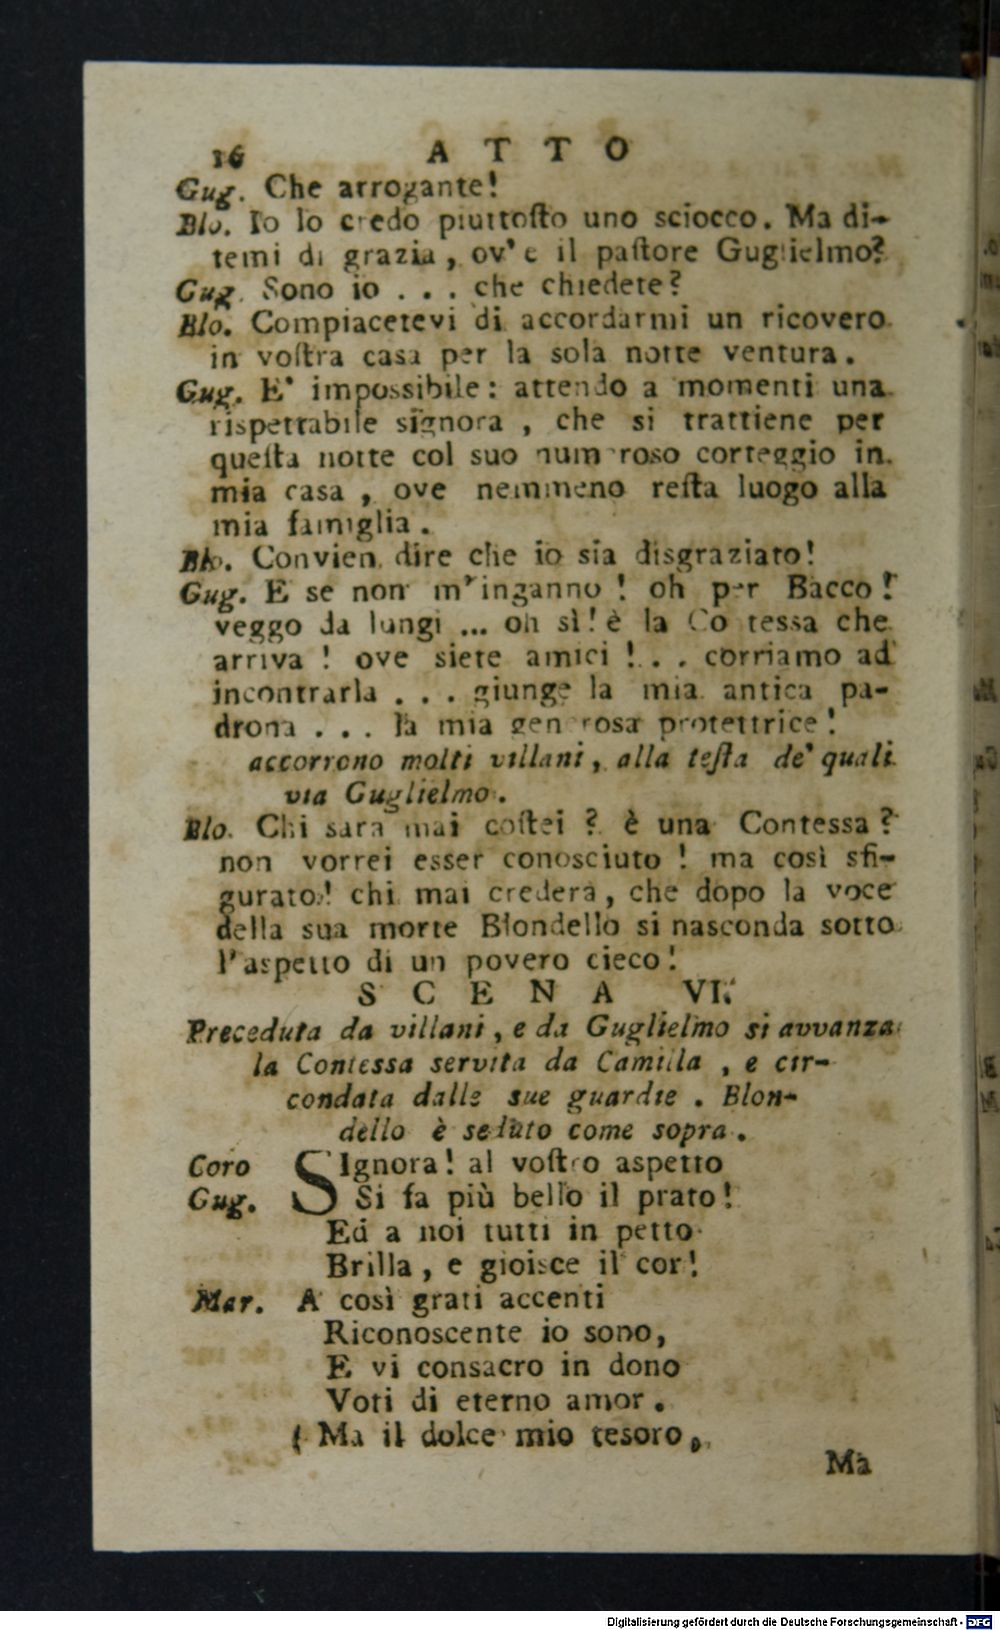 16 ATTO
Gug. Che arrogante!
Blo. Io lo credo piuttoſto uno sciocco. Ma di-
temi di grazia, ov'e il paſtore Guglielmo?
Gug. Sono io . . . che chiedete?
Blo. Compiacetevi di accordarmi un ricovero
in voſtra casa per la sola notte ventura.
Gug. E' impossibile: attendo a momenti una
rispettabile signora, che si trattiene per
queſta notte col suo numeroso corteggio in
mia casa, ove nemmeno reſta luogo alla
mia famiglia.
Blo. Convien dire che io sia disgraziato!
Gug. E se non m'inganno! oh per Bacco!
veggo da lungi ... oh sì! è la Contessa che
arriva! ove siete amici!. . . corriamo ad
incontrarla . . . giunge la mia antica pa-
drona . . . la mia generosa protettrice!
accorrono molti villani, alla teſta de' quali
via Guglielmo.
Blo. Chi sarà mai coſtei? è una Contessa?
non vorrei esser conosciuto! ma così sfi-
gurato! chi mai crederà, che dopo la voce
della sua morte Blondello si nasconda sotto
l'aspetto di un povero cieco!
SCENA VI.
Preceduta da villani, e da Guglielmo si avvanza
la Contessa servita da Camilla, e cir-
condata dalle sue guardie. Blon-
dello è seduto come sopra.
Coro SIgnora! al voſtro aspetto
Gug. Si fa più bello il prato!
Ed a noi tutti in petto
Brilla, e gioisce il cor!
Mar. A così grati accenti
Riconoscente io sono,
E vi consacro in dono
Voti di eterno amor.
( Ma il dolce mio tesoro,
Ma
Digitalisierung gefördert durch die Deutsche Forschungsgemeinschaft - DFG